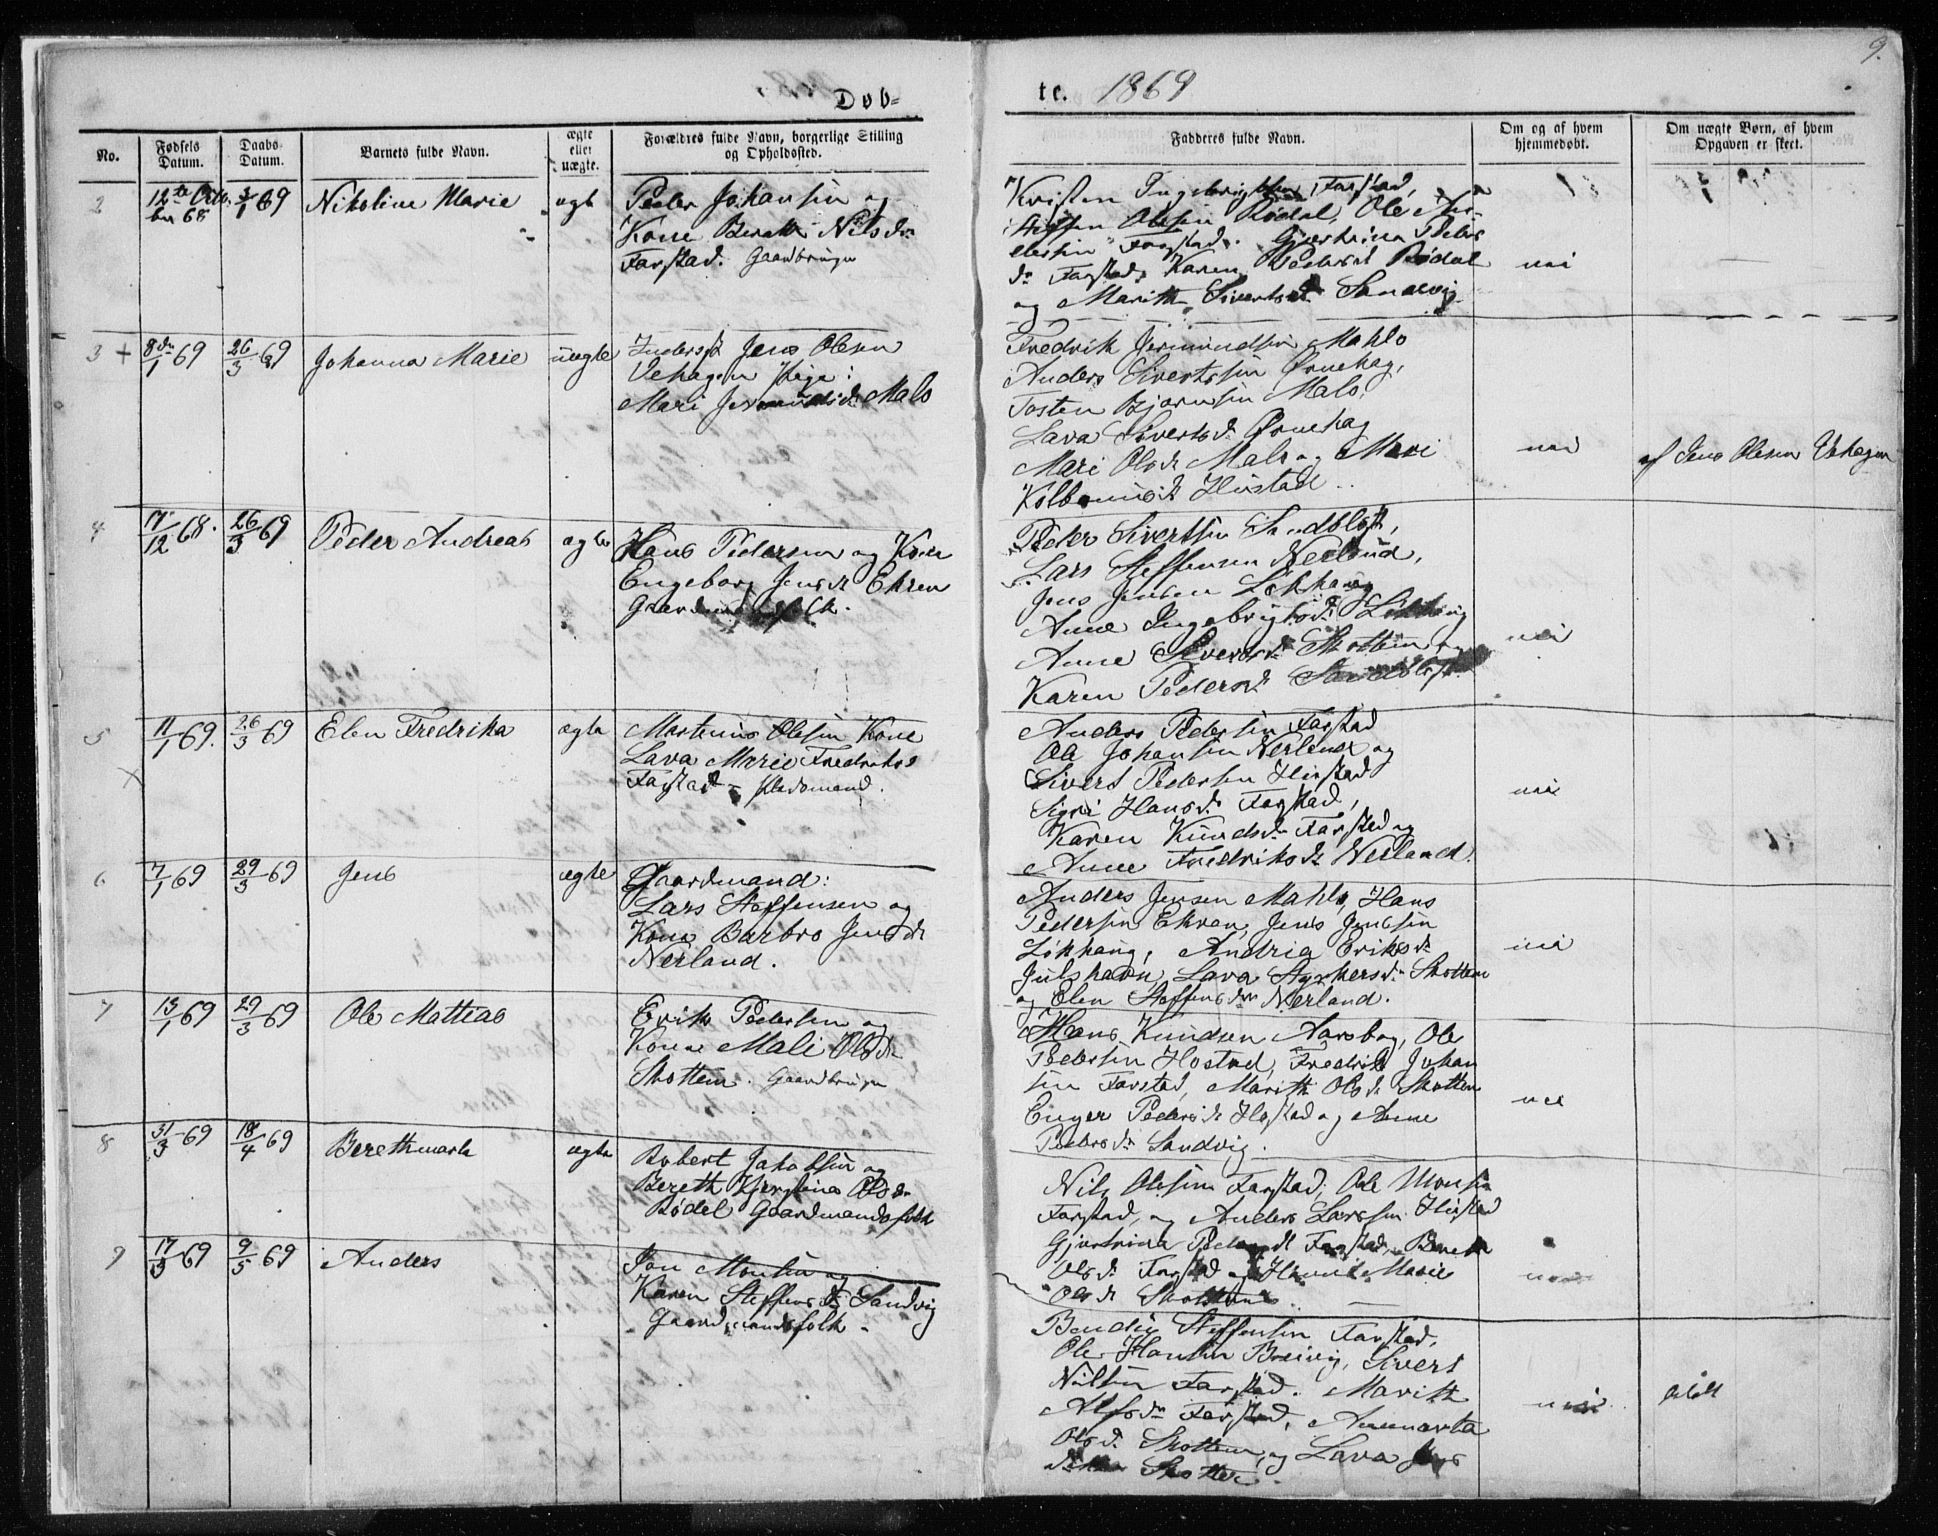 9.
Døb=
te. 1869
No.
Fødsels Datum.
Daabs Datum.
Barnets fulde Navn.
ægte eller uægte.
Forældres fulde Navn, borgerlige Stilling og Opholdssted.
Fadderes fulde Navn.
Om og af hvem hjemmedøbt.
Om uægte Børn, af hvem Opgaven er skeet.
2
12te Octo
ber 68
3/1 69
Nikoline Marie
ægt
Peder Johansen og
Kone Berett Nilsdr
Farstad. Gaardbruger
Kristen Ingebrigtsen, Farstad,
Steffen Olesen Rødal, Ole An-
dersen Farstad. Gjertrina Peders
dr Farstad, Karen Pedersdt Rødal
og Marith Sivertsdt Sandvig
nei
3 +
8de/1 69
26/3 69
Johanna Marie
uægte
Inderst Jens Olesen
Vehagen Pige:
Mari Jermundsdt Malo
Fredrik Jermundsen Mahlo
Anders Sivertsen Ørnehag,
Tosten Bjørnsen Malo,
Lava Sivertsd. Ørnehag
Mari Olsdt Malo og Mari
Kolbeinsdt Hustad
nei
af Jens Olesen Vehagen
4
17/12 68.
26/3 69
Peder Andreas
ægte
Hans Pedersen og Kone
Engeborg Jensdt Ekren
Gaardmandsfolk.
Peder Sivertsen Sandbløst,
Lars Steffensen Nerland,
Jens Jensen Løkhaug
Anne Ingebrigtsdt Løkhaug
Anne Sivertsdt Skotten og
Karen Pedersdt Sandbløst
nei
5
11/1 69.
26/3 69
Elen Fredrika
ægte
Martinus Olesen Kone
Lava Marie Fredriksd
Farstad – Pladsmand.
Anders Pedersen Farstad
Ole Johansen Nerland og
Sivert Pedersen Hustad
Sigri Hansdr Farstad,
Karen Knudsdr Farstad og
Anne Fredriksdt Nerland.
nei
6
7/1 69
29/3 69
Jens
ægte
Gaardmand:
Lars Steffensen og
Kone Barbro Jensdt
Nerland.
Anders Jensen Mahlo, Hans
Pedersen Ekren, Jens Jensen
Løkhaug, Andria Eriksdt
Julshavn, Lava Styrkersdr Skotten
og Olen Steffensdr Nerland.
nei
7
13/1 69
29/3 69
Ole Mattias
Erik Pedersen og
Kone Mali Olsdr
Skotten. Gaardbruger
Hans Knudsen Aarsbog, Ole
Pedersen Hostad, Fredrik Johan
sen Farstad, Marith Olsdt Skotten
Enger Pedersdt Hostad og Anne
Pedersdr Sandvig.
nei
8
31/3 69
18/4 69
Berethmarta
ægte
Robert Jakobsen og
Bereth Kjerstina Olsdr
Rødal Gaardmandsfolk
Nils Olesen Farstad, Ole Monsen
Farstad, og Anders Larsen Hustad
Gjertrina Pedersdt Farstad, Bereth
Olsdt Farstad og Hanna Marie
Olsdt Skotten
nei
9
17/3 69
9/5 69
Anders
Jon Monsen og
Karen Steffensdt Sandvig
Gaardmandsfolk
Bendix Steffensen Farstad,
Ole Hansen Breivig, Sivert
Nilsen Farstad. Marith
Alfsdr Farstad, Annemarta
Olsd. Skotten, og Lava
Skotten.
nei